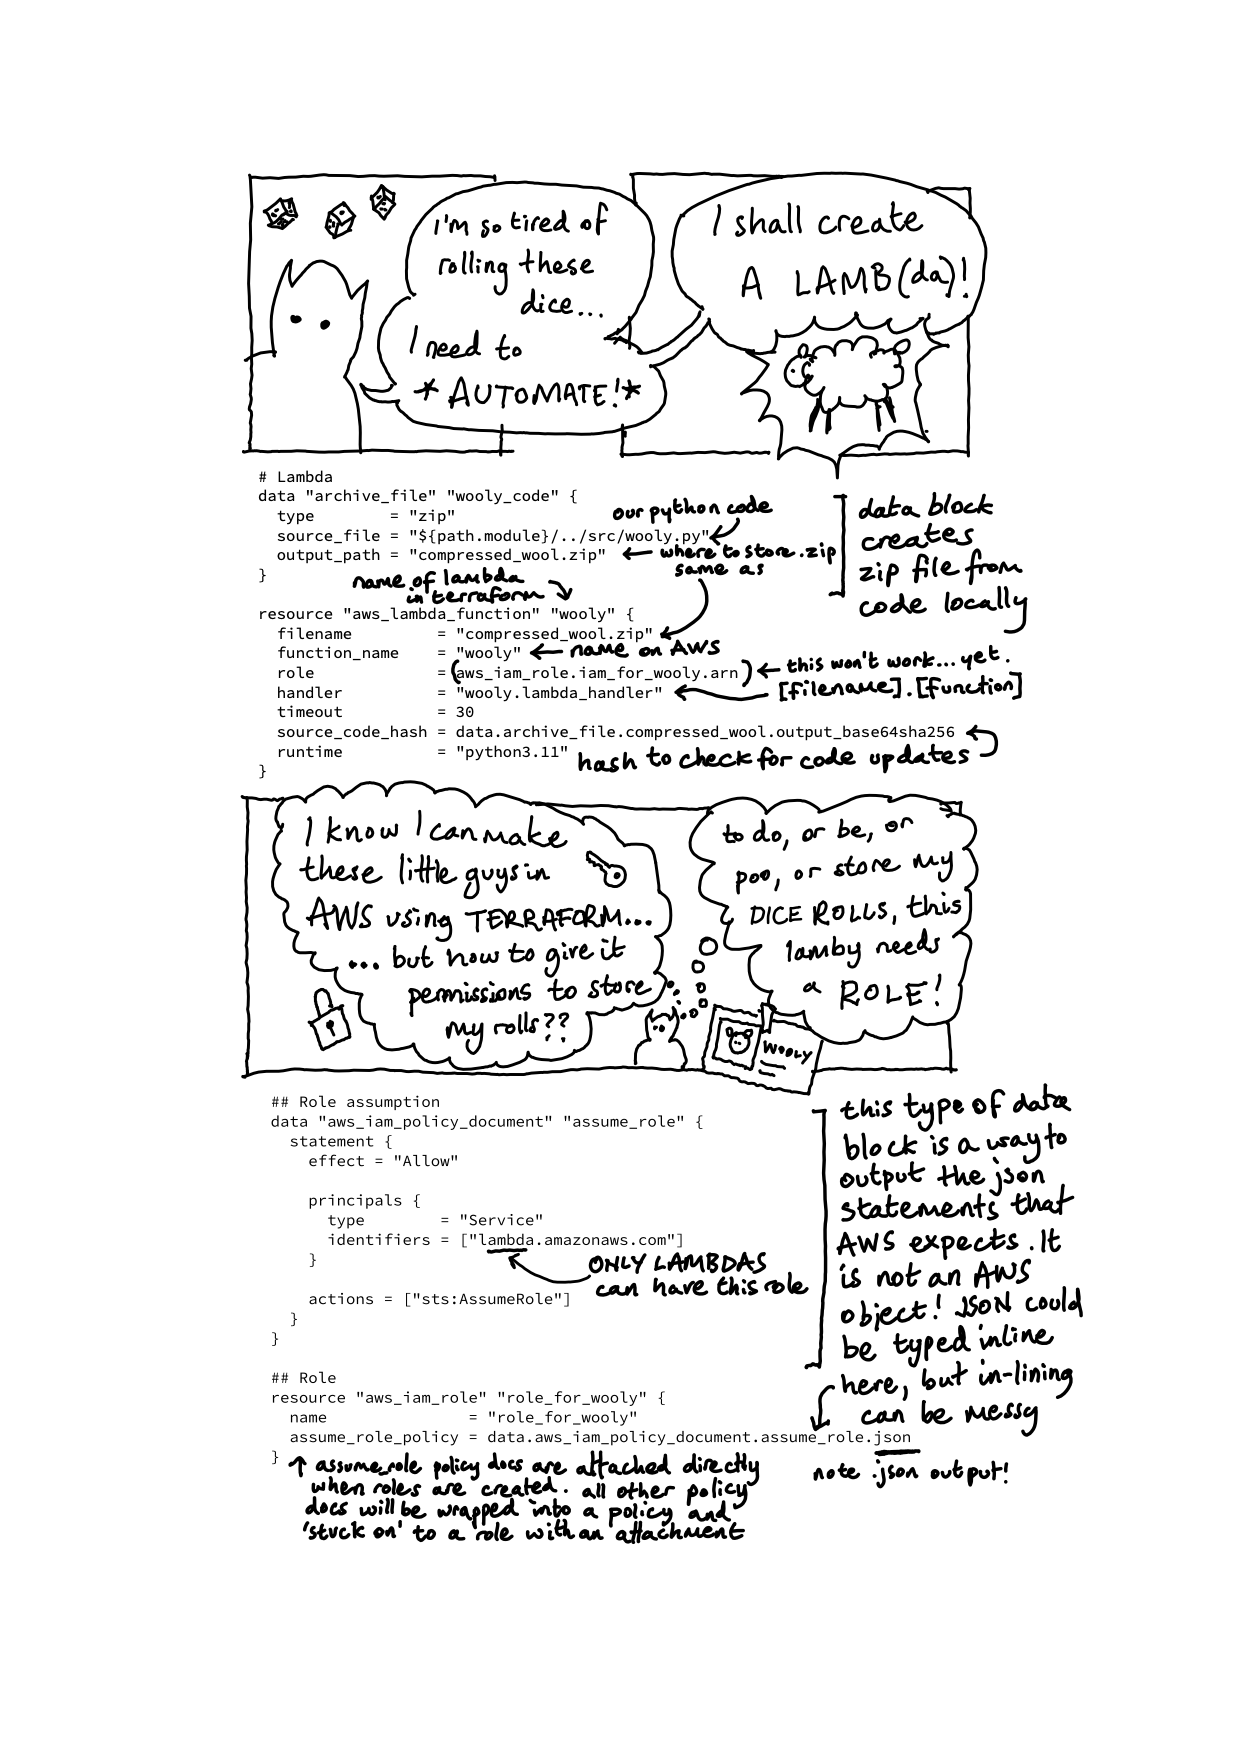 I'm so tired of
rolling these
dice...
I need to
*AUTOMATE!*
I shall create
A LAMB(da)!
# Lambda
data "archive_file" "wooly_code" {
type = "zip"
source_file = "${path.module}/../src/wooly.py"
our python code
output_path = "compressed_wool.zip"
where to store .zip
same as
}
data block
creates
zip file from
code locally
name of lambda
in terraform
resource "aws_lambda_function" "wooly" {
filename = "compressed_wool.zip"
function_name = "wooly"
name on AWS
role = (aws_iam_role.iam_for_wooly.arn)
this won't work... yet.
handler = "wooly.lambda_handler"
[filename].[function]
timeout = 30
source_code_hash = data.archive_file.compressed_wool.output_base64sha256
runtime = "python3.11"
hash to check for code updates
}
I know I can make
these little guys in
AWS using TERRAFORM...
... but how to give it
permissions to store
my rolls??
to do, or be, or
poo, or store my
DICE ROLLS, this
lamby needs
a ROLE!
WOOLY
## Role assumption
data "aws_iam_policy_document" "assume_role" {
statement {
effect = "Allow"
principals {
type = "Service"
identifiers = ["lambda.amazonaws.com"]
}
ONLY LAMBDAS
can have this role
actions = ["sts:AssumeRole"]
}
}
this type of data
block is a way to
output the json
statements that
AWS expects. It
is not an AWS
object! JSON could
be typed inline
here, but in-lining
can be messy
## Role
resource "aws_iam_role" "role_for_wooly" {
name = "role_for_wooly"
assume_role_policy = data.aws_iam_policy_document.assume_role.json
}
note .json output!
assume_role policy docs are attached directly
when roles are created. all other policy
docs will be wrapped into a policy and
'stuck on' to a role with an attachment